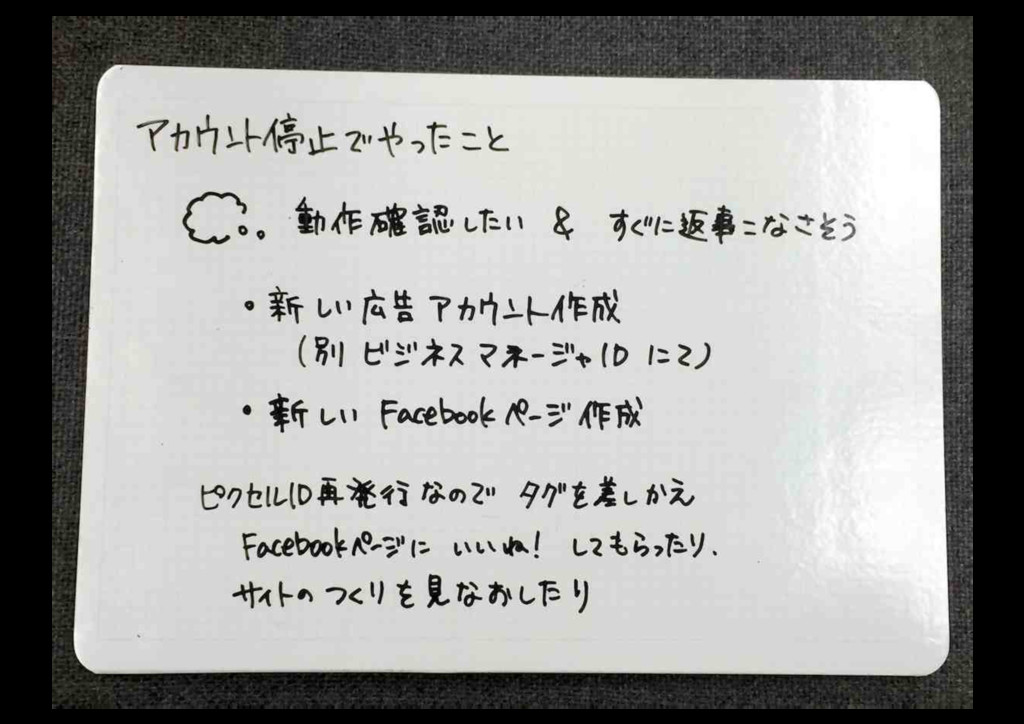 アカウント停止でやったこと
動作確認したい & すぐに返事こなさそう
・新しい広告アカウント作成
(別ビジネスマネージャIDにて)
・新しいFacebookページ作成
ピクセルID再発行なので タグを差しかえ
Facebookページに いいね! してもらったり、
サイトのつくりを見なおしたり